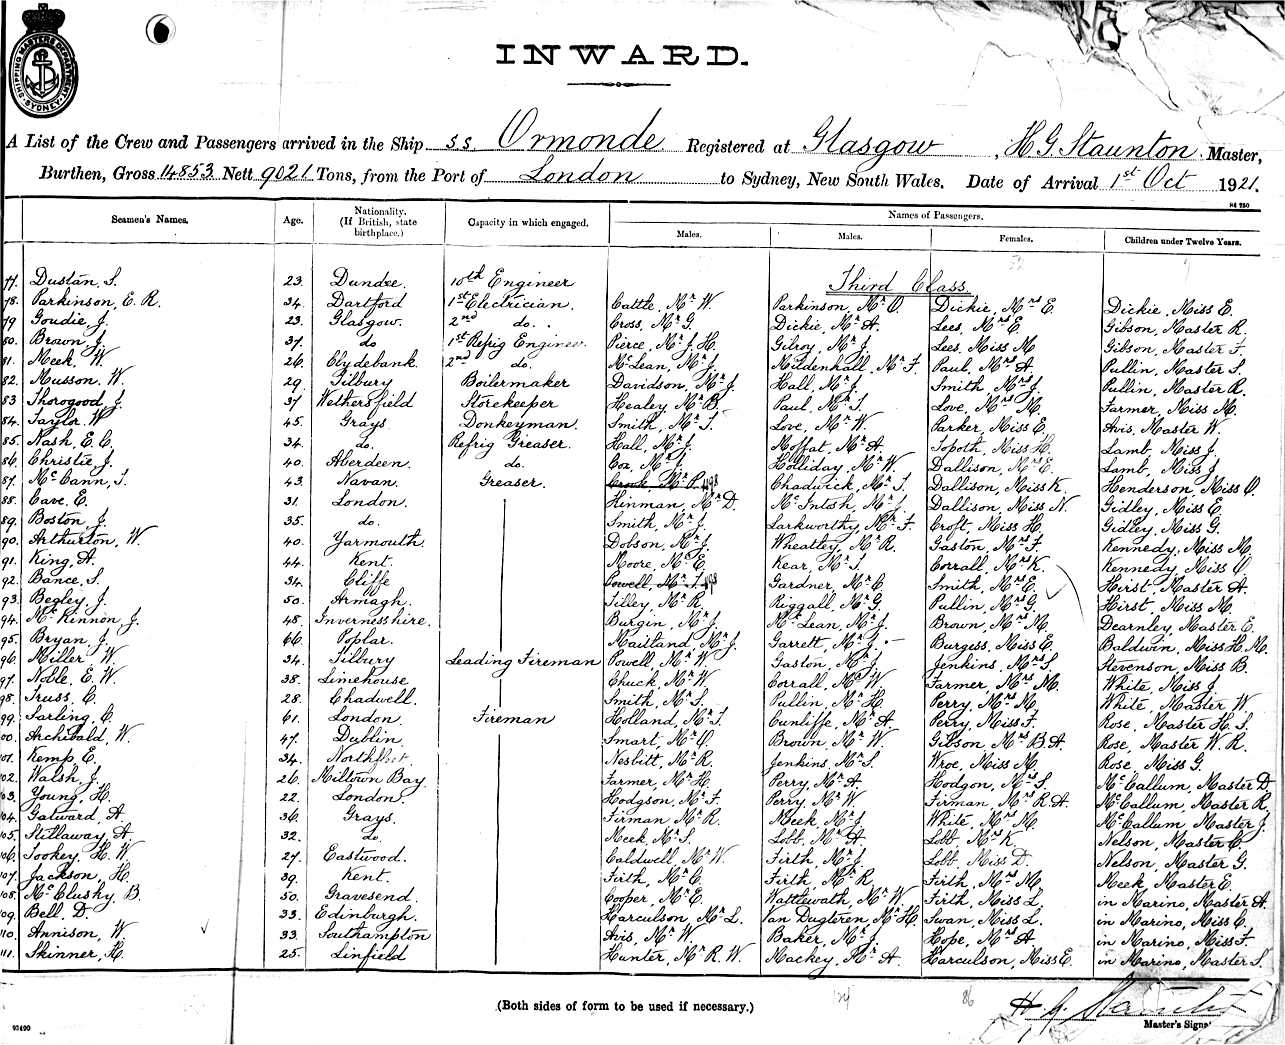 SHIPPING MASTERS DEPARTMENT SYDNEY
INWARD.
A List of the Crew and Passengers arrived in the Ship S.S. Ormonde Registered at Glasgow, H G Staunton Master,
Burthen, Gross 14853 Nett 9021 Tons, from the Port of London to Sydney, New South Wales. Date of Arrival 1st Oct 1921.
Seamen's Names. Age. Nationality. (If British, state birthplace.) Capacity in which engaged. Names of Passengers.
Males. Males. Females. Children under Twelve Years.
Third Class.
77. Dustan, S. 23. Dundee. 10th Engineer
78. Parkinson, E. R. 34. Dartford 1st Electrician. Cattle, Mr W. Parkinson, Mr O. Dickie, Mrs E. Dickie, Miss E.
79 Goudie, J. 23. Glasgow. 2nd do. Cross, Mr G. Dickie, Mr A. Lees, Mrs E. Gibson, Master R.
80. Brown, J. 37. do 1st Refrig Engineer Pierce, Mr J. H. Gilroy, Mr J. Lees, Miss M Gibson, Master F.
81. Meek, W. 26. Clydebank. 2nd do. McLean, Mr J. Mildenhall, Mr F. Paul, Mrs A. Pullin, Master S.
82. Musson, W. 29. Tilbury Boilermaker Davidson, Mr J. Hall, Mr J. Smith, Mrs J. Pullin, Master R.
83 Thorogood, J. 37 Wethersfield Storekeeper Healey, Mr B. Paul, Mr T. Love, Mrs M. Farmer, Miss M.
84. Taylor, W 45. Grays Donkeyman. Smith, Mr T. Love, Mr W. Parker, Miss E. Avis, Master W.
85. Nash, E. C. 34. do. Refrig Greaser. Hall, Mr J. Moffat, Mr A. Topoth, Miss H. Lamb Miss J.
86. Christie, J. 40. Aberdeen. do. Cox, Mr J. Holliday, Mr W. Dallison, Mrs E. Lamb, Miss J.
87. McCann, T. 43. Navan. Greaser. Crook, Mr P. Chadwick, Mr T. Dallison, Miss K. Henderson, Miss O.
88. Cave. E. 31. London. Hinman, Mr D. McIntosh, Mr J. Dallison, Miss N. Gidley, Miss E.
89. Boston, J. 35. do. Smith, Mr J. Larkworthy, Mr F. Croft, Miss H. Gidley, Miss G.
90. Arthurton, W. 40. Yarmouth. Dobson, Mr J. Wheatley, Mr R. Gaston, Mrs F. Kennedy, Miss M.
91. King, A. 44. Kent. Moore, Mr E. Kear, Mr T. Corrall, Mrs K. Kennedy, Miss O.
92. Bance, S. 34. Cliffe Powell, Mr T. Gardner, Mr C. Smith, Mrs E. Hirst, Master A.
93. Begley, J. 50. Armagh. Tilley, Mr R. Riggall, Mr G. Pullin, Mrs G. Hirst, Miss M.
94. McKinnon, J. 48. Invernesshire. Burgin, Mr J. McLean, Mr J. Brown, Mrs M. Dearnley, Master E.
95. Bryan, J. 66. Poplar. Maitland, Mr J. Garrett, Mr J. Burgess, Miss E. Baldwin, Miss H. M.
96. Miller, W 34. Tilbury Leading Fireman Powell, Mr W. Gaston, Mr J. Jenkins, Mrs S. Stevenson, Miss B.
97. Noble, E. W. 38. Limehouse Chuck, Mr W. Corrall, Mr W. Farmer, Mrs M. White, Miss J.
98. Truss, C. 28. Chadwell. Smith, Mr S. Pullin, Mr H. Perry, Mrs M. White, Master W
99. Sarling, C. 61. London. Fireman Holland, Mr T. Cunliffe, Mr A. Perry, Miss F. Rose, Master H. S.
00. Archibald, W. 47. Dublin. Smart, Mr O. Brown, Mr W. Gibson, Mrs B. A. Rose, Master W. R.
101. Kemp, E. 34. Northfleet. Nesbitt, Mr R. Jenkins, Mr S. Wroe, Miss M. Rose, Miss G.
102. Walsh, J. 26. Miltown Bay. Farmer, Mr H. Perry, Mr A. Hodgon, Mrs S. McCallum, Master D.
103. Young, H. 22. London. Hodgson, Mr F. Perry, Mr W. Firman, Mrs R. A. McCallum, Master R.
104. Gatward, A. 36. Grays. Firman, Mr R. Meek, Mr J. White, Mrs M. McCallum, Master J.
105. Stillaway, A. 32. do. Meek, Mr S. Lobb, Mr A. Lobb, Mrs K. Nelson, Master C.
106. Tookey, H. W. 27. Eastwood. Caldwell, Mr W. Firth, Mr J. Lobb, Miss D. Nelson, Master G.
107. Jackson, H 39. Kent. Firth, Mr C. Firth, Mr R. Firth, Mrs M. Meek, Master E.
108. McClusky, B. 50. Gravesend. Cooper, Mr E. Wattlewath, Mr W. Firth, Miss L. in Marino, Master A.
109. Bell, D. 33. Edinburgh. Harculson, Mr L. Van Dugteren, Mr H. Swan, Miss L. in Marino, Miss C.
110. Annison, W. 33. Southampton Avis, Mr W. Baker, Mr J. Hope, Mrs A in Marino, Miss F.
111. Skinner, H. 25. Linfield Hunter, Mr R. W. Mackey, Mr A. Harculson, Miss E. in Marino, Master S.
(Both sides of form to be used if necessary.)
86
H. G. Staunton
Master's Signa